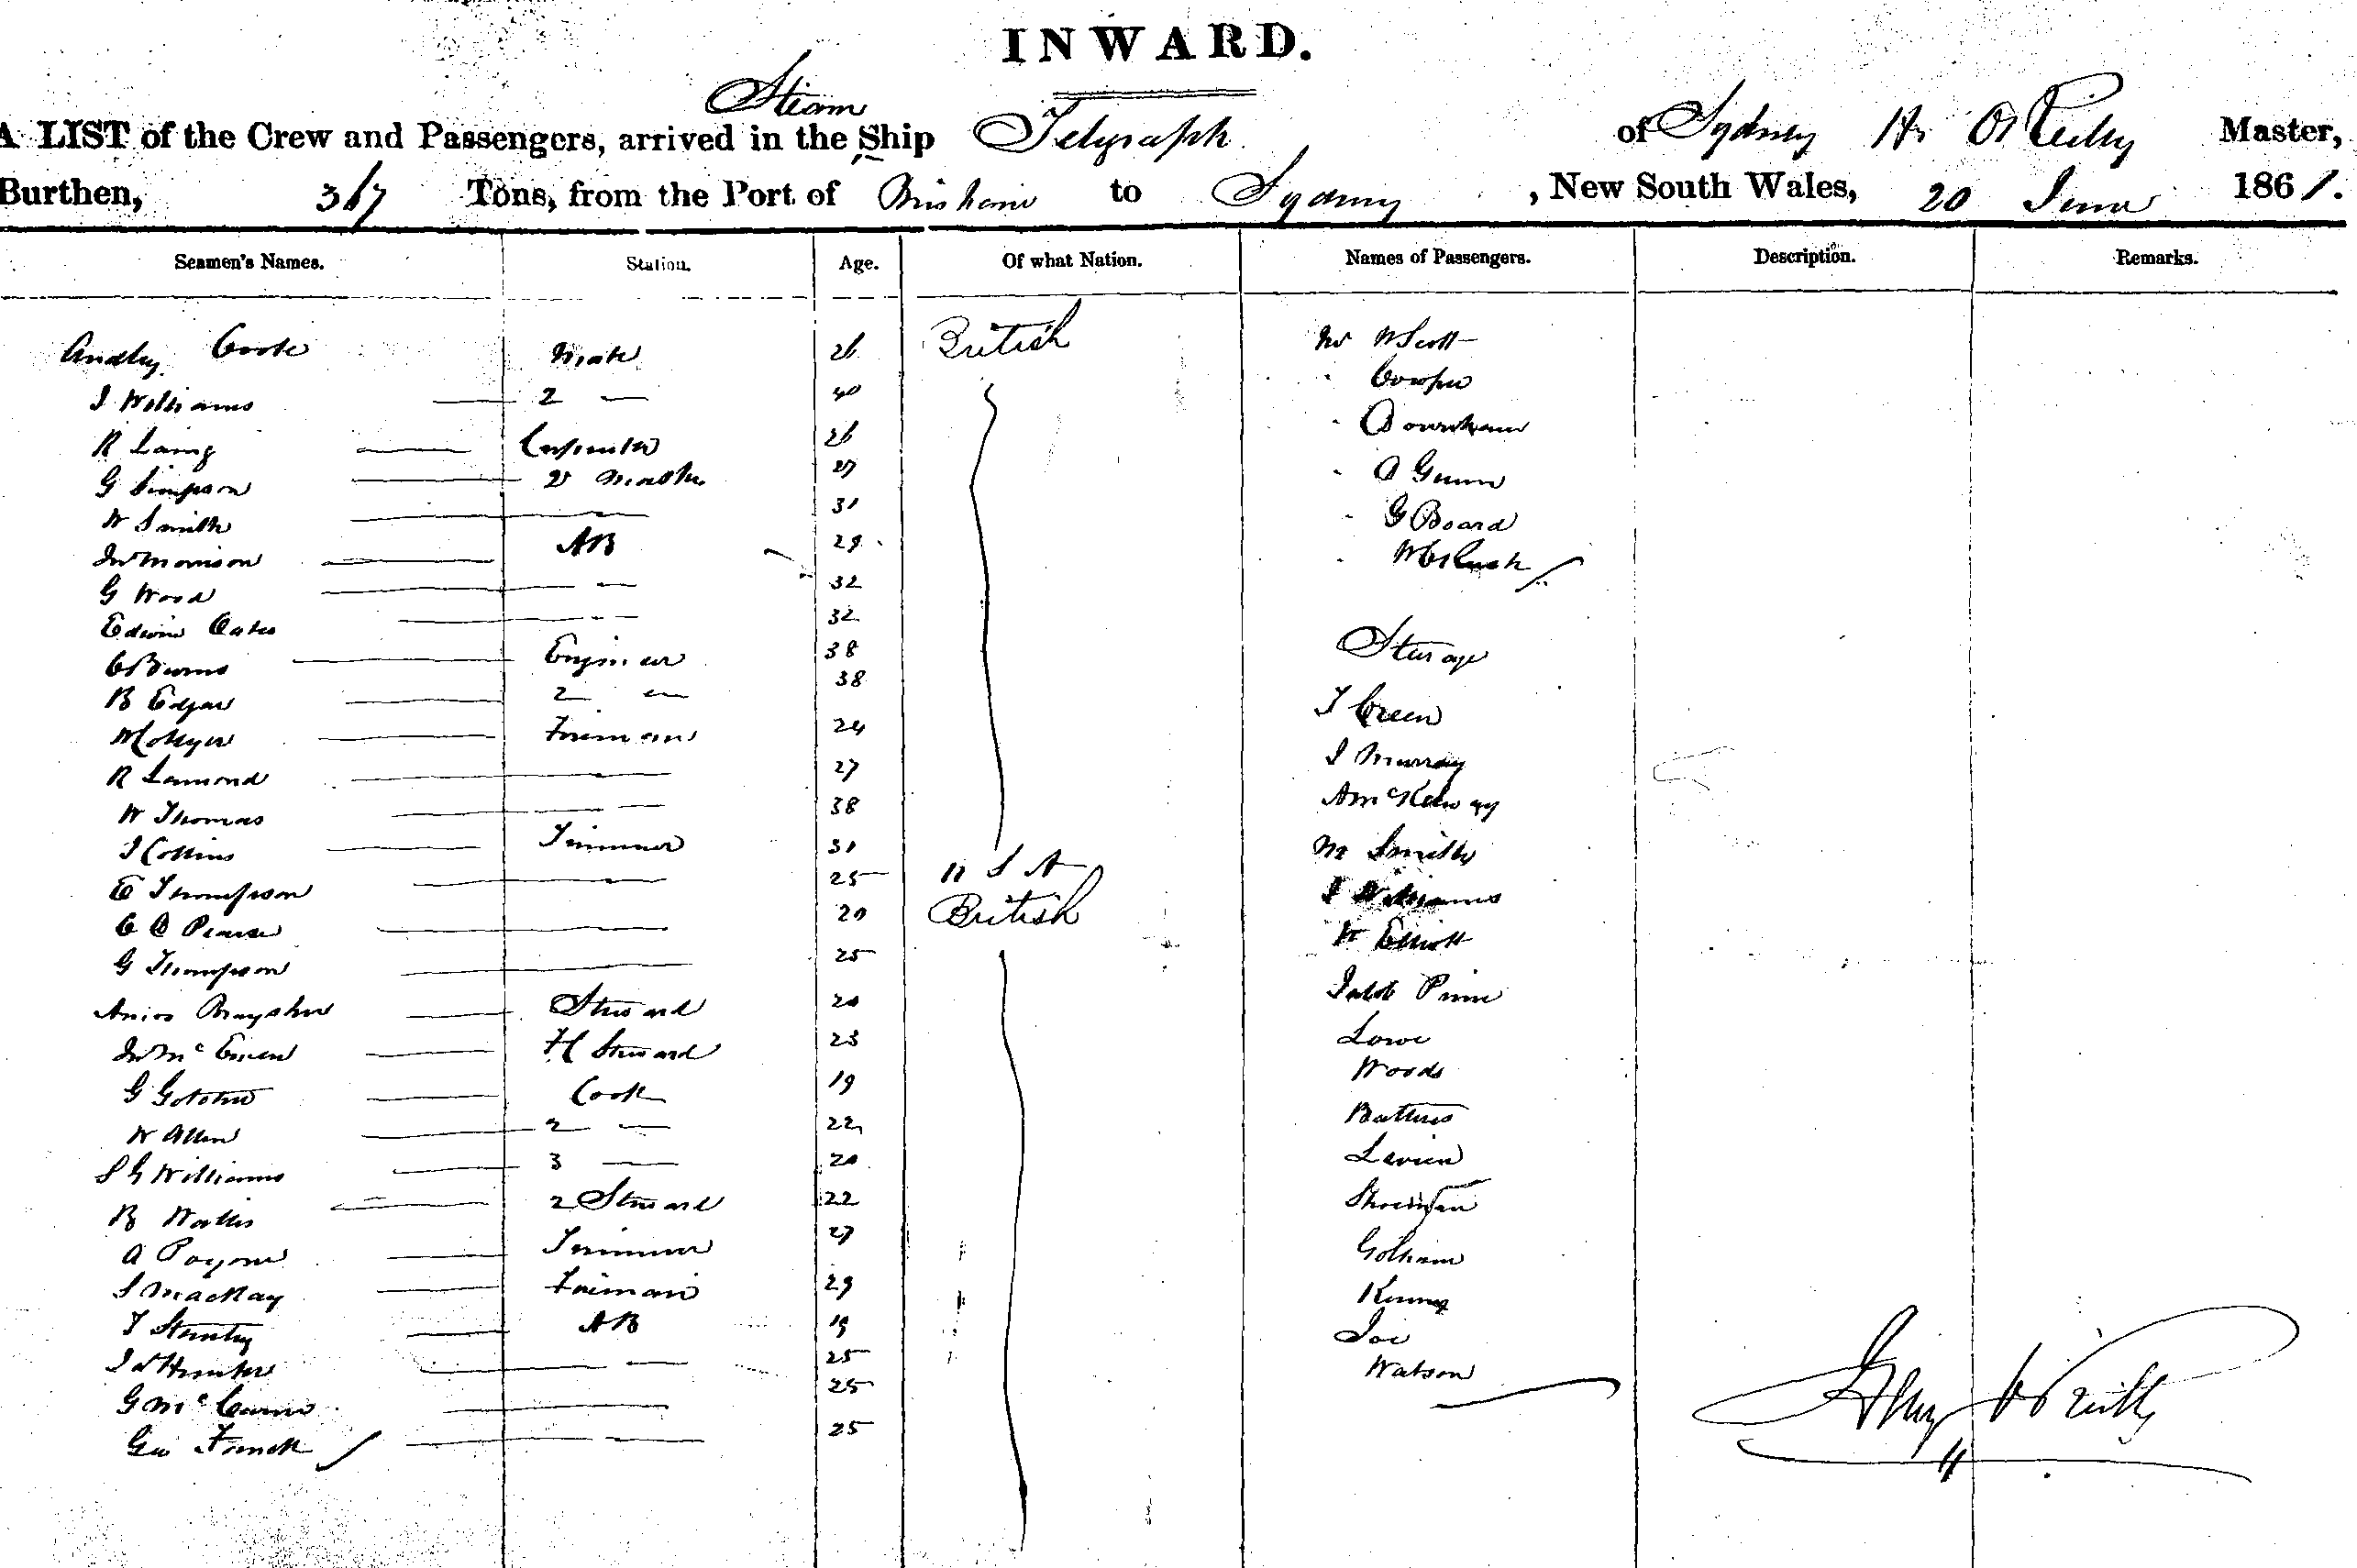 INWARD.
Steam
A LIST of the Crew and Passengers, arrived in the Ship Telegraph of Sydney Hy O'Reilly Master,
Burthen, 367 Tons, from the Port of Brisbane to Sydney, New South Wales, 20 June 1861.
Seamen's Names. Station. Age. Of what Nation. Names of Passengers. Description. Remarks.
Cook Mate 26 British Mr W Scott
J Williams 2 — 40 Cowper
R Laing Carpenter 26
G Simpson 27 A Gunn
W Smith — 31 G Board
Jno Morrison AB 29
G Wood — 32
Edwin Oates — 32
C Burns Engineer 38 Steerage
B Edgar 2 — 38
Fireman 24 T Green
R Lamond — 27 J Murray
W Thomas — 38 A McKelway
J Collins Trimmer 31 M Smith
E Thompson — 25 U S A J Williams
C D Pearse — 20 British W Elliott
G Thompson — 25
Amos Brayshaw Steward 20 Lowe
Jno McEwen H Steward 23 Woods
G Cook 19
W Allen 2 — 22 Levien
S G Williams 3 — 20
B Wallis 2 Steward 22
A Trimmer 27
S MacKay Fireman 29
T Stanley AB 19 Joe
J W Hunter — 25 Watson
G — 25
Geo French — 25
Henry O'Reilly